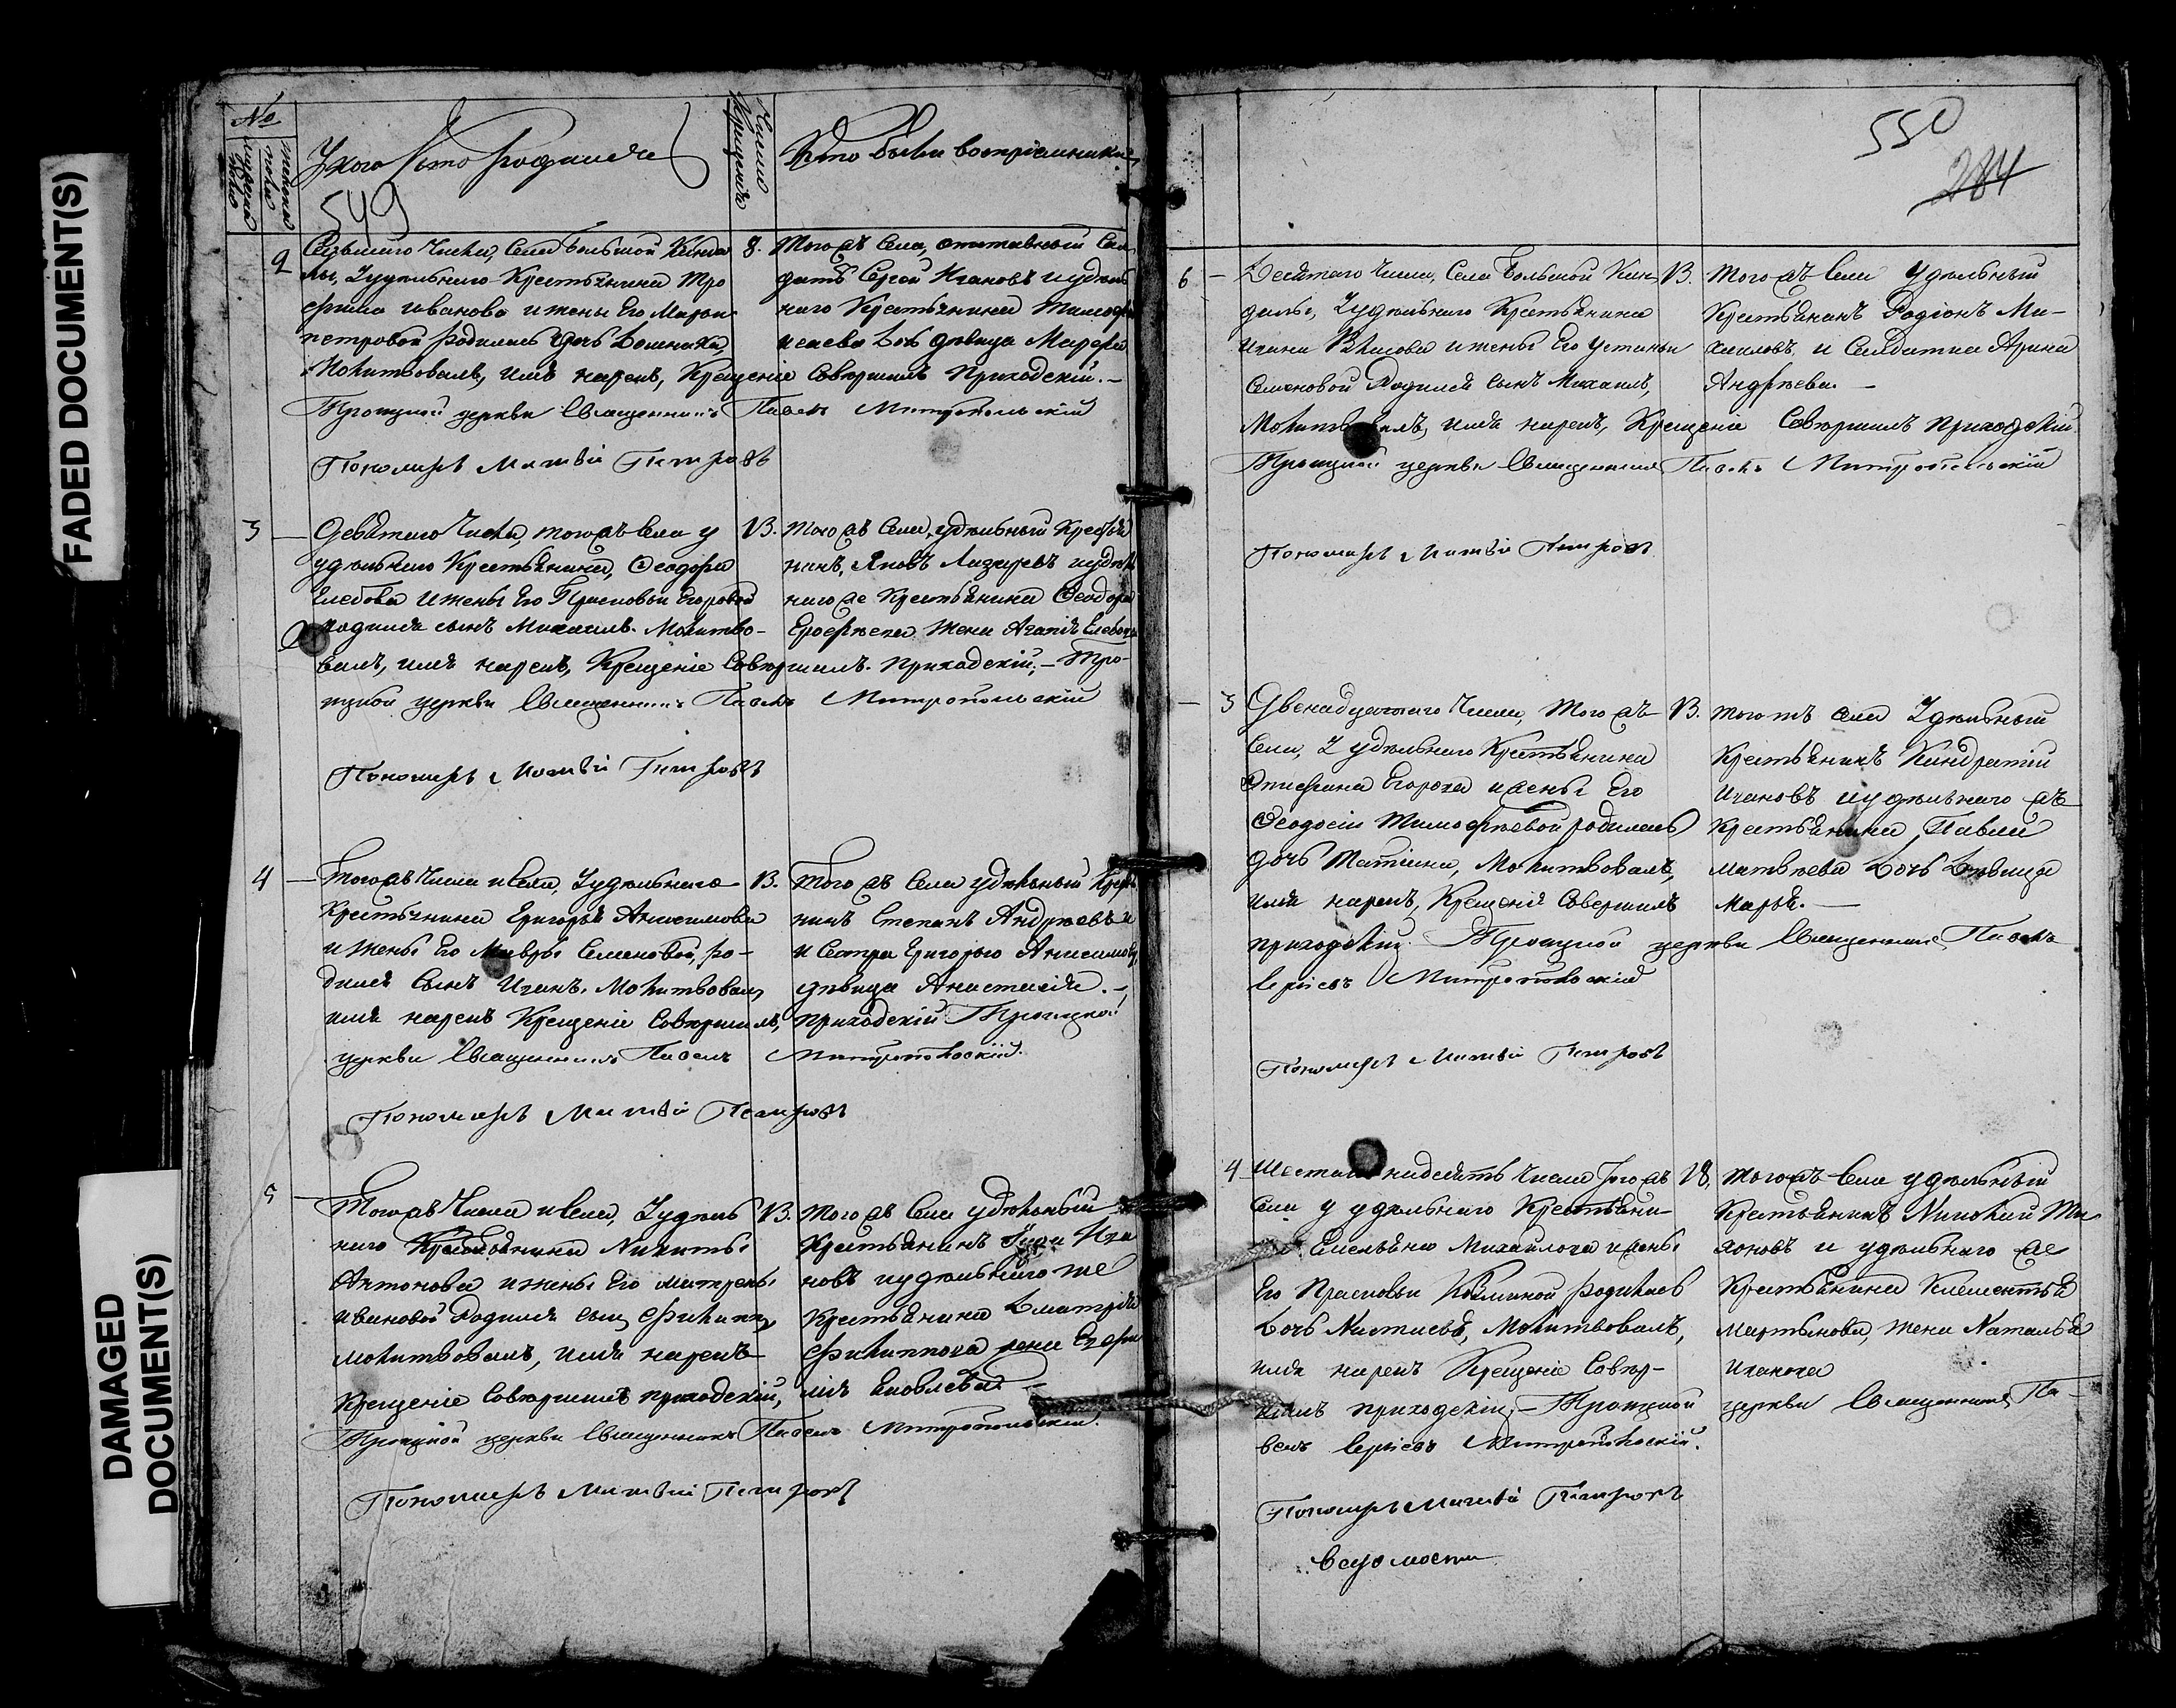 FADED DOCUMENT(S)
DAMAGED
DOCUMENT(S)
№
мужеска пола
женска пола
У кого кто родился
Число крещенія
Кто были воспріемники
549
2
Седьмаго числа, села Большой Кинде
лы, Уудельнаго Крестьянина Тро
фима иванова и жены Его Марьи
петровой родилась дочь Домника,
Молитвовалъ, имя нарекъ, Крещеніе совершилъ приходскій.—
Троицкой церкви Священникъ Павелъ Митропольскій
Пономарь Матвій Петровъ
8.
Того жъ села, отставный Сол
датъ Сергей Ивановъ иудель
наго Крестьянина Тимофея
дочь девица Марфа
3
Девятаго числа, того жъ села у
удельнаго Крестьянина, Феодора
Глебова и жены Его Прасковьи Егоровой
родился сынъ Михаилъ. Молитво-
валъ, имя нарекъ, Крещеніе совершилъ. приходскій,— Тро-
ицкой церкви Священникъ Павелъ Митропольскій
Пономарь Матвій Петровъ
13.
Того жъ села, удельный Крестья
нинъ, Яковъ Лазаревъ иудель
наго же Крестьянина Феодора
Ерофеева жена Агапія
4
Того жъ числа и села, Уудельнаго
Крестьянина Григорья Анисимова
и жены Его Мавры Семеновой, ро-
дился сынъ Иванъ. Молитвовалъ,
имя нарекъ Крещеніе совершилъ, приходскій Троицкой
церкви Священникъ Павелъ Митропольскій.
Пономарь Матвій Петровъ
13.
Того жъ села удельный Крестья
нинъ Степанъ Андреевъ и
и сестра Григорью Анисимову,
девица Анастасія.—
5
Того жъ числа и села, Ууделъ
наго Крестьянина Никиты
Антонова и жены Его матрены
ивановой Родился сынъ Филиппъ,
молитвовалъ, имя нарекъ
Крещеніе совершилъ приходскій,
Троицкой церкви Священникъ Павелъ Митропольскій.
Пономарь Матвій Петровъ
13.
Того жъ села удельный
Крестьянинъ Ива
новъ иудельнаго же
Крестьянина Дмитрія
Филиппова жена Евфи
мія Яковлева.—
550
284
6
Десятаго числа, села Большой Кин-
делы, Уудельнаго Крестьянина
Ивана Власова и жены Его Устиньи
Семеновой Родился сынъ Михаилъ,
Молитвовалъ, имя нарекъ, Крещеніе совершилъ приходскій.
Троицкой церкви Священникъ Павелъ Митропольскій
Пономарь Матвій Петровъ
13.
Того жъ села Удельный
Крестьянинъ Родіонъ Ми-
хаиловъ, и Салдатка Арина
Андреева.—
3
Двенадцатаго числа, Того жъ
села, У удельнаго Крестьянина
Епифана Егорова и жены Его
Феодосіи Тимофеевой родилась
дочь Татіана, Молитвовалъ,
имя нарекъ, Крещеніе совершилъ
приходскій. Троицкой церкви Священникъ Павелъ
Митропольскій
Пономарь Матвій Петровъ
13.
того жъ села Удельный
Крестьянинъ Киндратій
Ивановъ иудельнаго жъ
Крестьянина, Павла
матвеева Дочь Девица
Марья.—
4
Шестагонадесять числа того жъ
села у удельнаго Крестьяни-
Емельяна Михайлова и жены
Его Прасковьи Козминой родилась
Дочь Настасья, Молитвовалъ,
имя нарекъ Крещеніе совер-
шилъ приходскій,— Троицкой церкви Священникъ Па-
велъ Митропольскій.
Пономарь Матвій Петровъ
18.
Того жъ села удельный
Крестьянинъ Николай Ти
хоновъ и удельнаго же
Крестьянина Клементья
Мартынова, жена Наталья
Иванова